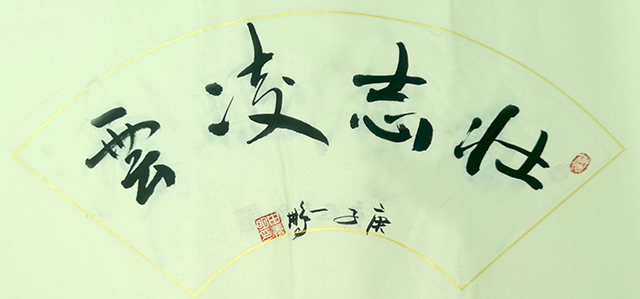 壮志凌雲
庚子一